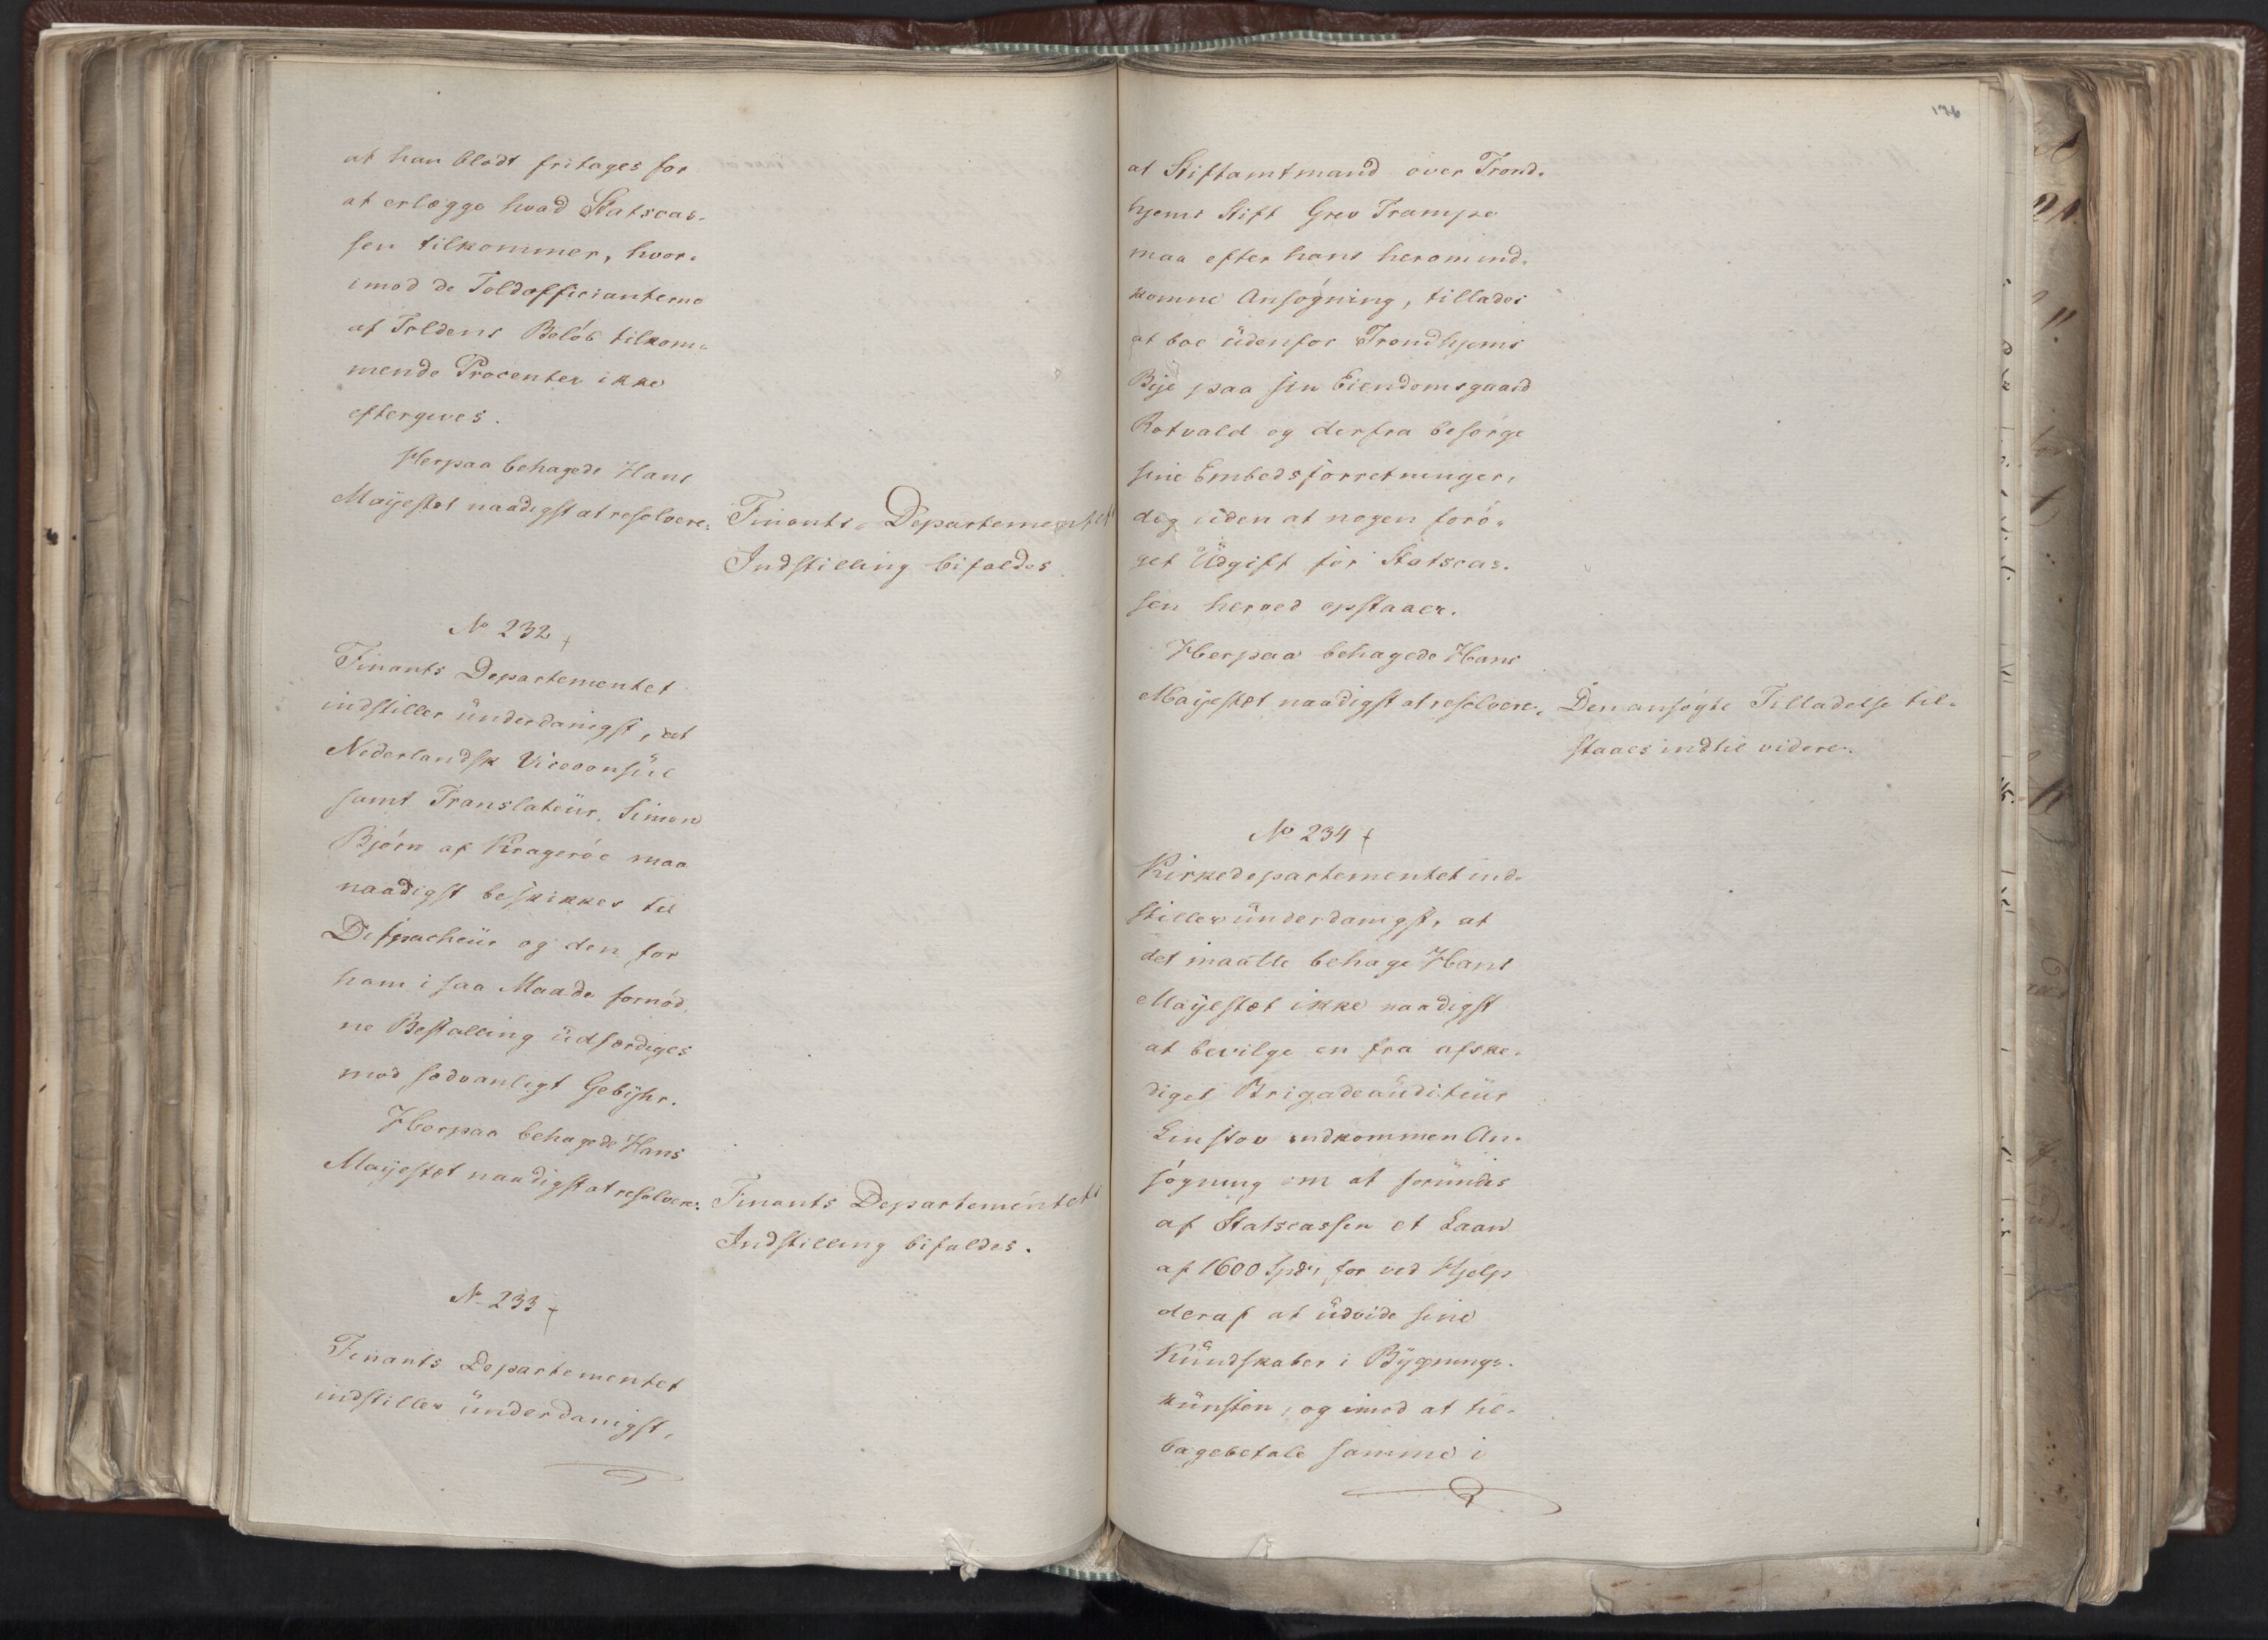 at han blodt fritages for
at erlægge hvad Statscas-
sen tilkommer, hvor-
imod de Toldofficianterne
af Toldens Beløb tilkom-
mende Procenter ikke
eftergives.
Herpaa behagede Hans
Mayestet naadigst at resolvere:
Finants-Departementets
Indstilling bifaldes
No 232
Finants Departementet
indstiller underdanigst, at
Nederlandsk Viceconsul
samt Translateur, Simon
Bjørn af Kragerøe maa
naadigst beskikkes til
Dispacheur og den for
ham i saa Maade fornød-
ne Bestalling udfærdiges
mod sædvanligt Gebyhr.
Herpaa behagede Hans
Mayestet naadigst at resolvere:
Finants Departementets
Indstilling bifaldes.
No 233
Finants Departementet
indstiller underdanigst,
176
at Stiftamtmand over Trond-
hjems Stift Grev Trampe
maa efter hans herom ind-
komne Ansøgning, tillades
at boe udenfor Trondhjems
Bye paa sin Eiendomsgaard
Rotvald og derfra besørge
sine Embedsforretninger,
dog uden at nogen forø-
get Udgift for Statscas-
sen herved opstaaer.
Herpaa behagede Hans
Mayestet naadigst at resolvere:
Den ansøgte Tilladelse til-
staaes indtil videre.
No 234
Kirkedepartementet ind-
stiller underdanigst, at
det maatte behage Hans
Mayestet ikke naadigst
at bevilge en fra afske-
diget Brigadeauditeur
Linstov indkommen An-
søgning om at forundes
af Statscassen et Laan
af 1600 Spd, for ved Hjelp
deraf at udvide sine
Kundskaber i Bygnings-
kunsten, og imod at til-
bagebetale samme i